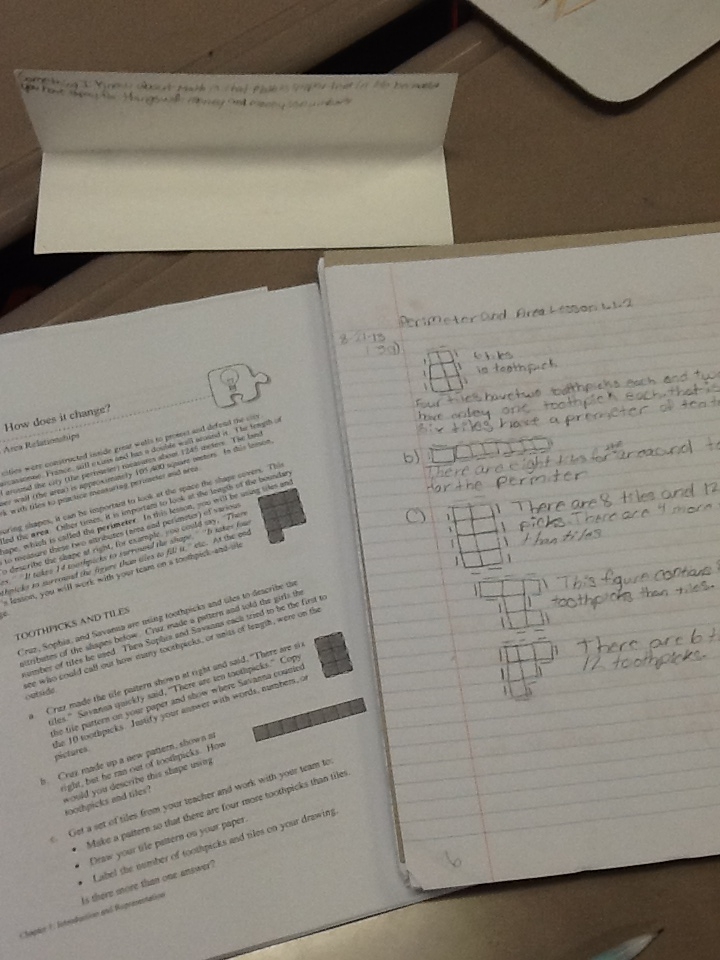 Something I know about Math is that Math is important in life because
you have many things with money and many
How does it change?
Area Relationships
cities were constructed inside great walls to protect and defend the city
France, still exists and has a double wall around it. The length of
around the city (the perimeter) measures about 1245 meters. The land
wall (the area) is approximately 105,400 square meters. In this lesson,
work with tiles to practice measuring perimeter and area.
shapes, it can be important to look at the space the shape covers. This
called the area. Other times, it is important to look at the length of the boundary
shape, which is called the perimeter. In this lesson, you will be using tiles and
to measure these two attributes (area and perimeter) of various
To describe the shape at right, for example, you could say, "There
"It takes 14 toothpicks to surround the shape." "It takes four
toothpicks to surround the figure than tiles to fill it." etc. At the end
lesson, you will work with your team on a toothpick-and-tile
TOOTHPICKS AND TILES
Cruz, Sophia, and Savanna are using toothpicks and tiles to describe the
attributes of the shapes below. Cruz made a pattern and told the girls the
number of tiles he used. Then Sophia and Savanna each tried to be the first to
see who could call out how many toothpicks, or units of length, were on the
outside.
a. Cruz made the tile pattern shown at right and said, "There are six
tiles." Savanna quickly said, "There are ten toothpicks." Copy
the tile pattern on your paper and show where Savanna counted
the 10 toothpicks. Justify your answer with words, numbers, or
pictures.
b. Cruz made up a new pattern, shown at
right, but he ran out of toothpicks. How
would you describe this shape using
toothpicks and tiles?
c. Get a set of tiles from your teacher and work with your team to:
• Make a pattern so that there are four more toothpicks than tiles.
• Draw your tile pattern on your paper.
• Label the number of toothpicks and tiles on your drawing.
Is there more than one answer?
Chapter 1: Introduction and Representation
Perimeter and Area Lesson 1.1.2
8-21-13
a)
6 tiles
10 toothpick
Four tiles have two toothpicks each and two
have only one toothpick each that
six tiles have a premeter of ten
b)
There are eight tiles for the area and
for the perimiter
c)
There are 8 tiles and 12
picks. There are 4 more
than tiles
This figure contains
toothpicks than tiles.
There are 6
12 toothpicks.
6